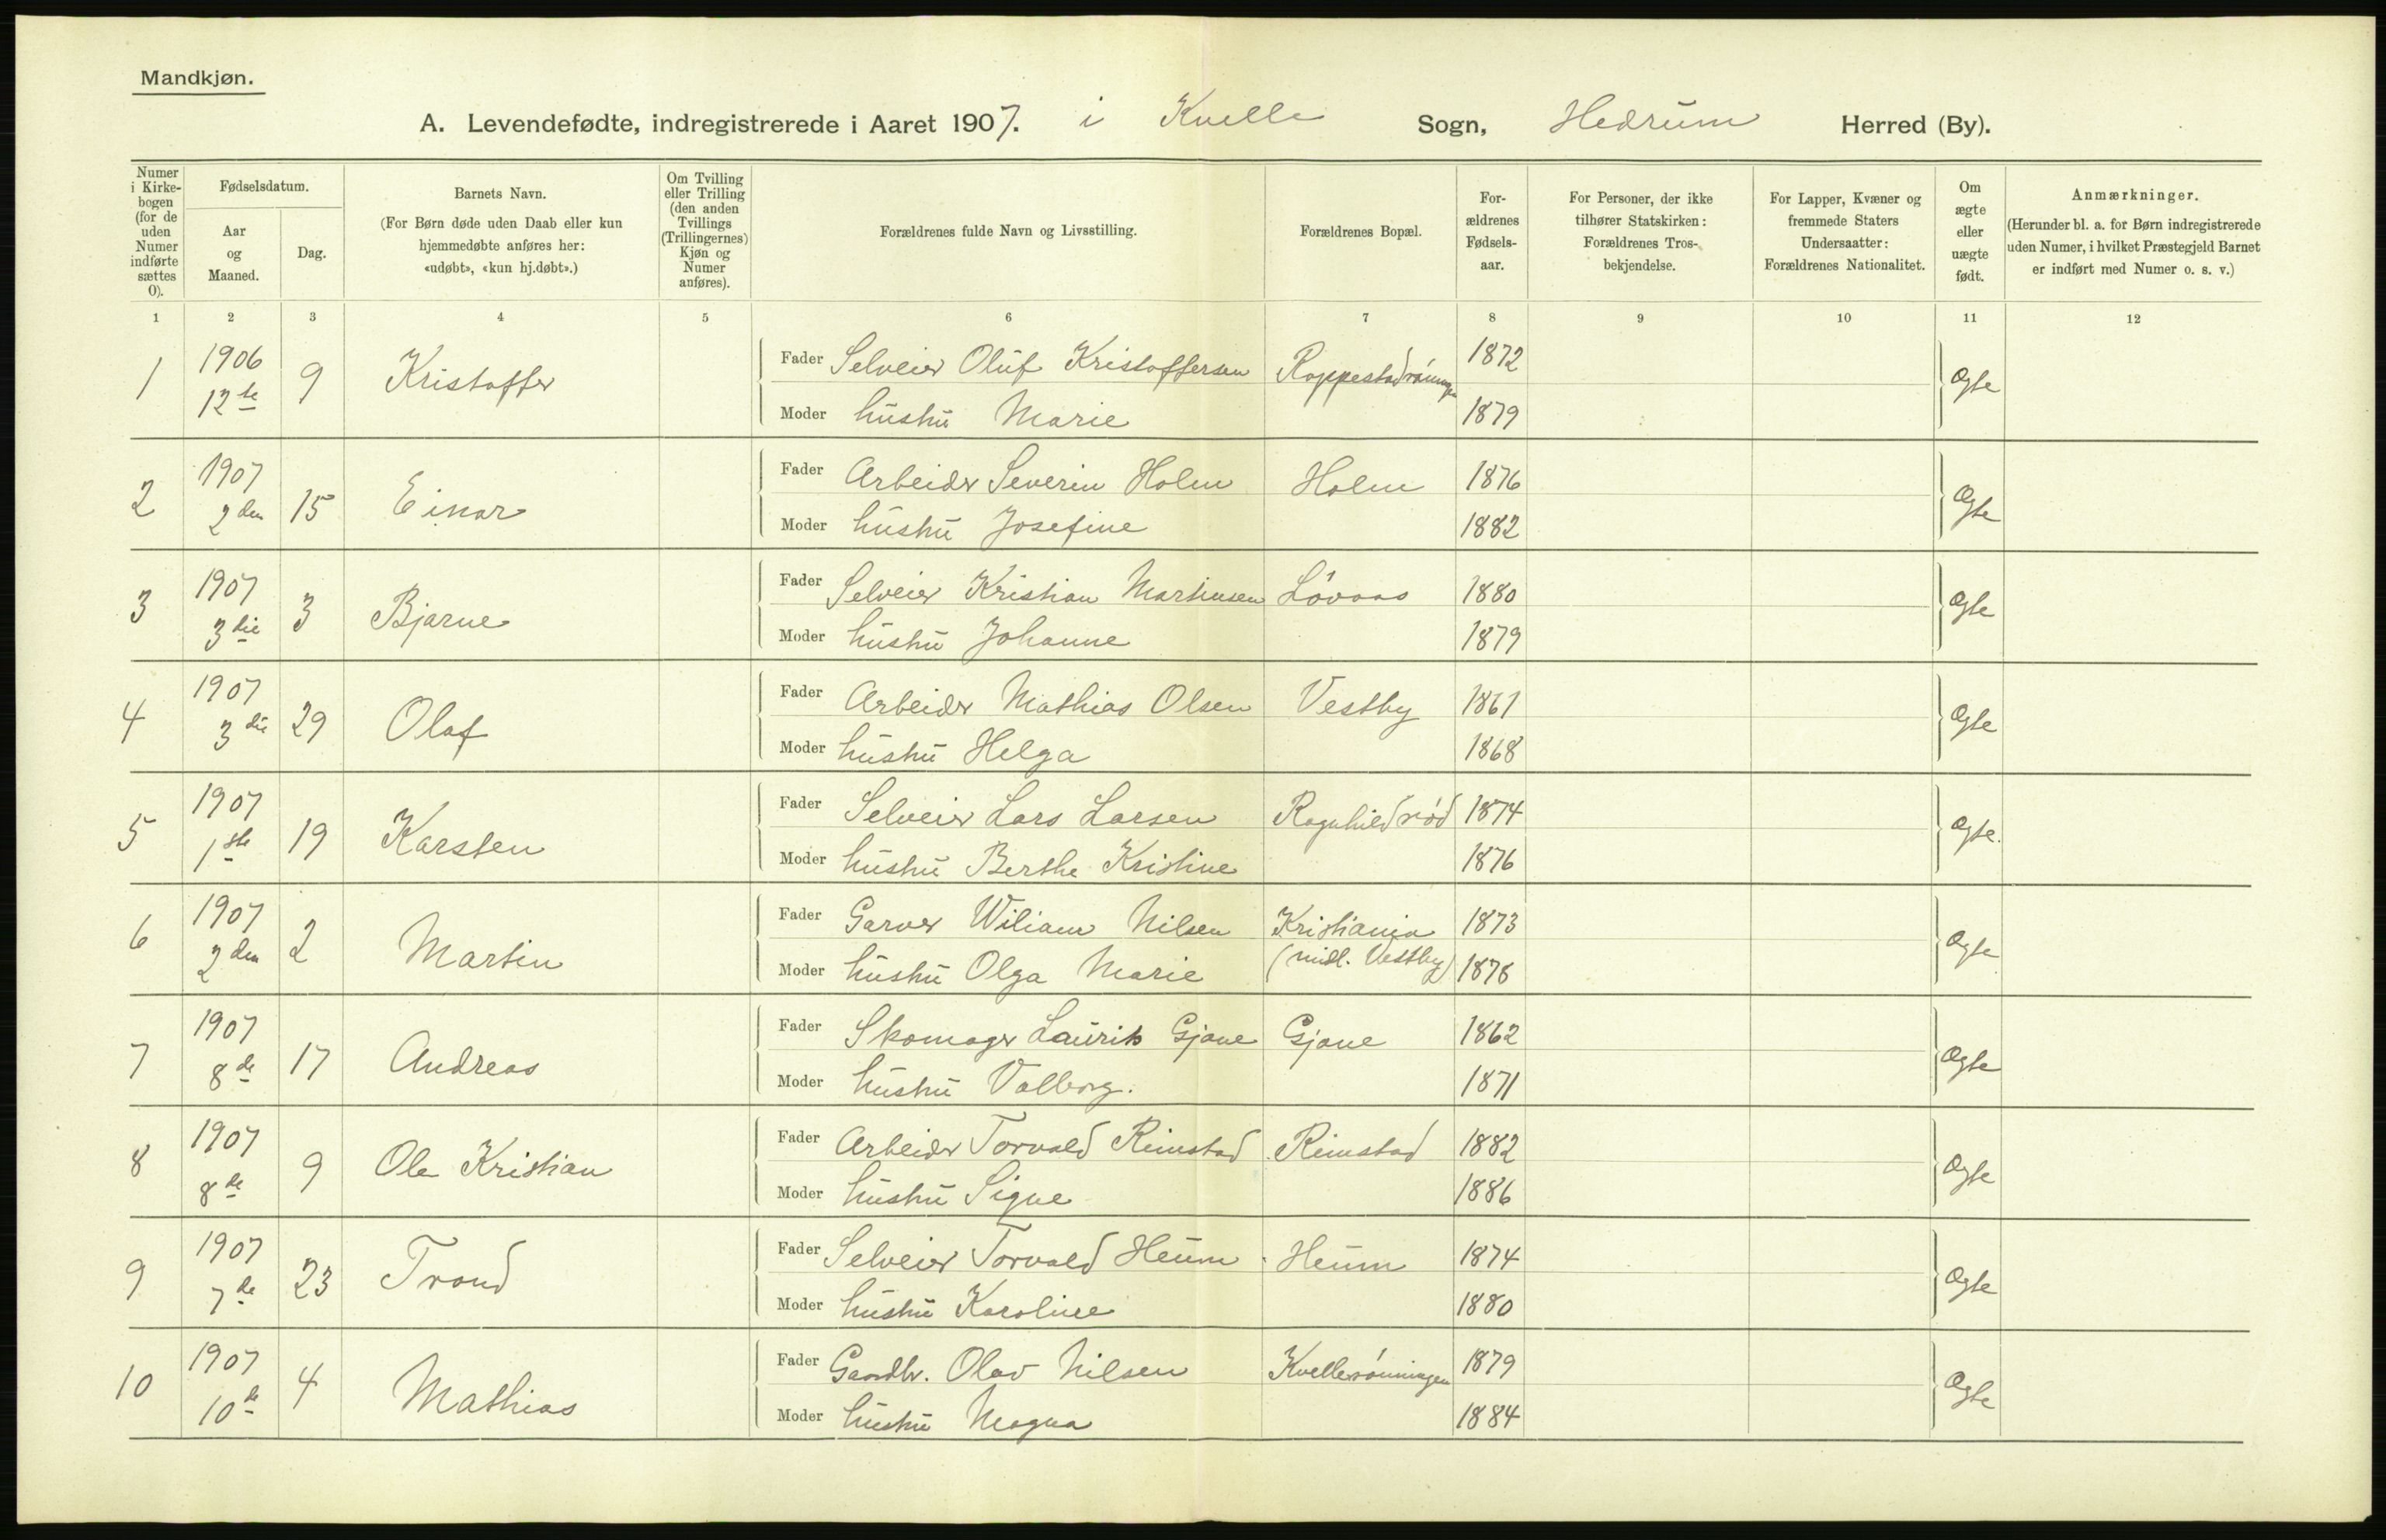 Mandkjøn.
A. Levendefødte, indregistrerede i Aaret 1907. i Kvelle Sogn, Hedrum Herred (By).
Numer i Kirkebogen (for de uden Numer indførte sættes 0).
Fødselsdatum.
Aar og Maaned.
Dag.
Barnets Navn.
(For Børn døde uden Daab eller kun hjemmedøbte anføres her: «udøbt», «kun hj.døbt».)
Om Tvilling eller Trilling (den anden Tvillings (Trillingernes) Kjøn og Numer anføres).
Forældrenes fulde Navn og Livsstilling.
Forældrenes Bopæl.
For-ældrenes Fødsels-aar.
For Personer, der ikke tilhører Statskirken: Forældrenes Tros-bekjendelse.
For Lapper, Kvæner og fremmede Staters Undersaatter: Forældrenes Nationalitet.
Om ægte eller uægte født.
Anmærkninger.
(Herunder bl. a. for Børn indregistrerede uden Numer, i hvilket Præstegjeld Barnet er indført med Numer o. s. v.)
1 2 3 4 5 6 7 8 9 10 11 12
1 1906 12te 9 Kristoffer Fader Selveier Oluf Kristoffersen 1872 Ægte
Moder hustru Marie 1879
2 1907 2den 15 Einar Fader Arbeider Severin Holm Holm 1876 Ægte
Moder hustru Josefine 1882
3 1907 3die 3 Bjarne Fader Selveier Kristian Martinsen Løvaas 1880 Ægte
Moder hustru Johanne 1879
4 1907 3die 29 Olaf Fader Arbeider Mathias Olsen Vestby 1861 Ægte
Moder hustru Helga 1868
5 1907 1ste 19 Karsten Fader Selveier Lars Larsen Ragnhildrød 1874 Ægte.
Moder hustru Berthe Kristine 1876
6 1907 2den 2 Martin Fader Garver Wiliam Nilsen Kristiania 1873 Ægte
Moder hustru Olga Marie (midl. Vestby) 1878
7 1907 8de 17 Andreas Fader Skomager Laurits Gjone Gjone 1862 Ægte
Moder hustru Valborg. 1871
8 1907 8de 9 Ole Kristian Fader Arbeider Torvald Rimstad Rimstad 1882 Ægte
Moder hustru Signe 1886
9 1907 7de 23 Trond Fader Selveier Torvald Heum Heum 1874 Ægte
Moder hustru Karoline 1880
10 1907 10de 4 Mathias Fader Gaardbr. Olav Nilsen Kvellerønningen 1879 Ægte
Moder hustru Magna 1884